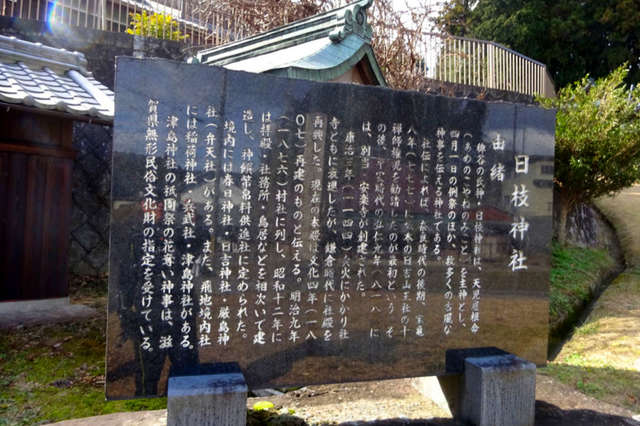 日枝神社
由緒
の氏神・日枝神社は、天児屋根命
(あめのこやねのみこと)を主神とし、
四月一日の例祭のほか、数多くの古個な
神事を伝える神社である。
社伝によれば、奈良時代の後期、宝亀
八年(七七七)、日吉山王社の十
禅師権現を勧請したのが最初という。そ
の後、平安時代の弘仁九年(八一八)に
は、別当・安楽寺が創建された。
康治三年(一一四四)火にかかり社
寺ともに衰退したが、鎌倉時代に社殿を
再興した。現在の本殿は文化四年(一八
〇七)再建のものと伝える。明治九年
(一八七六)村社に列し、昭和十二年に
は拝殿、社務所、鳥居などを相次いで建
造し、神饌幣帛料供進社に定められた。
境内には春日神社・日吉神社・厳島神
社(弁天社)がある。また、飛地境内社
には稲荷神社・玄武社・津島神社がある。
津島神社の祇園祭の花奪い神事は、滋
賀県無形民俗文化財の指定を受けている。